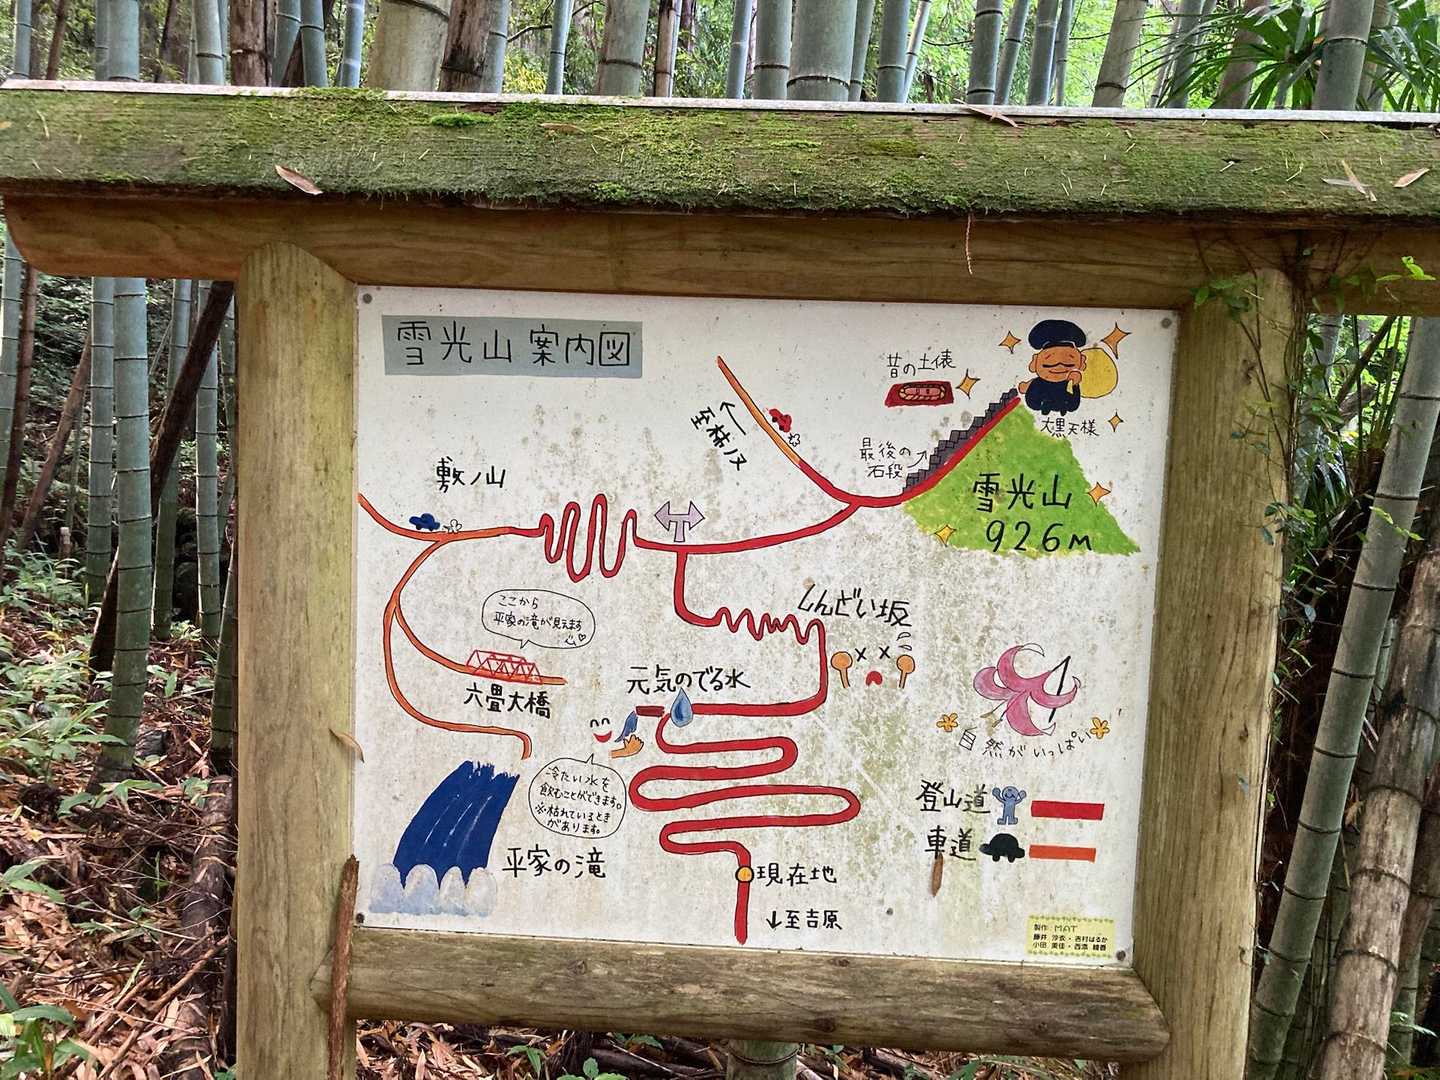 雪光山 案内図
昔の土俵
大黒天様
至柿ノ又
最後の
石段
敷ノ山
雪光山
926m
ここから
平家の滝が見えます
しんどい坂
六畳大橋
元気のでる水
自然がいっぱい
冷たい水を
飲むことができます。
※枯れているとき
があります。
登山道
車道
平家の滝
現在地
↓至吉原
製作 MAT
藤井 沙衣・吉村はるか
小田 美佳・西添 綾香